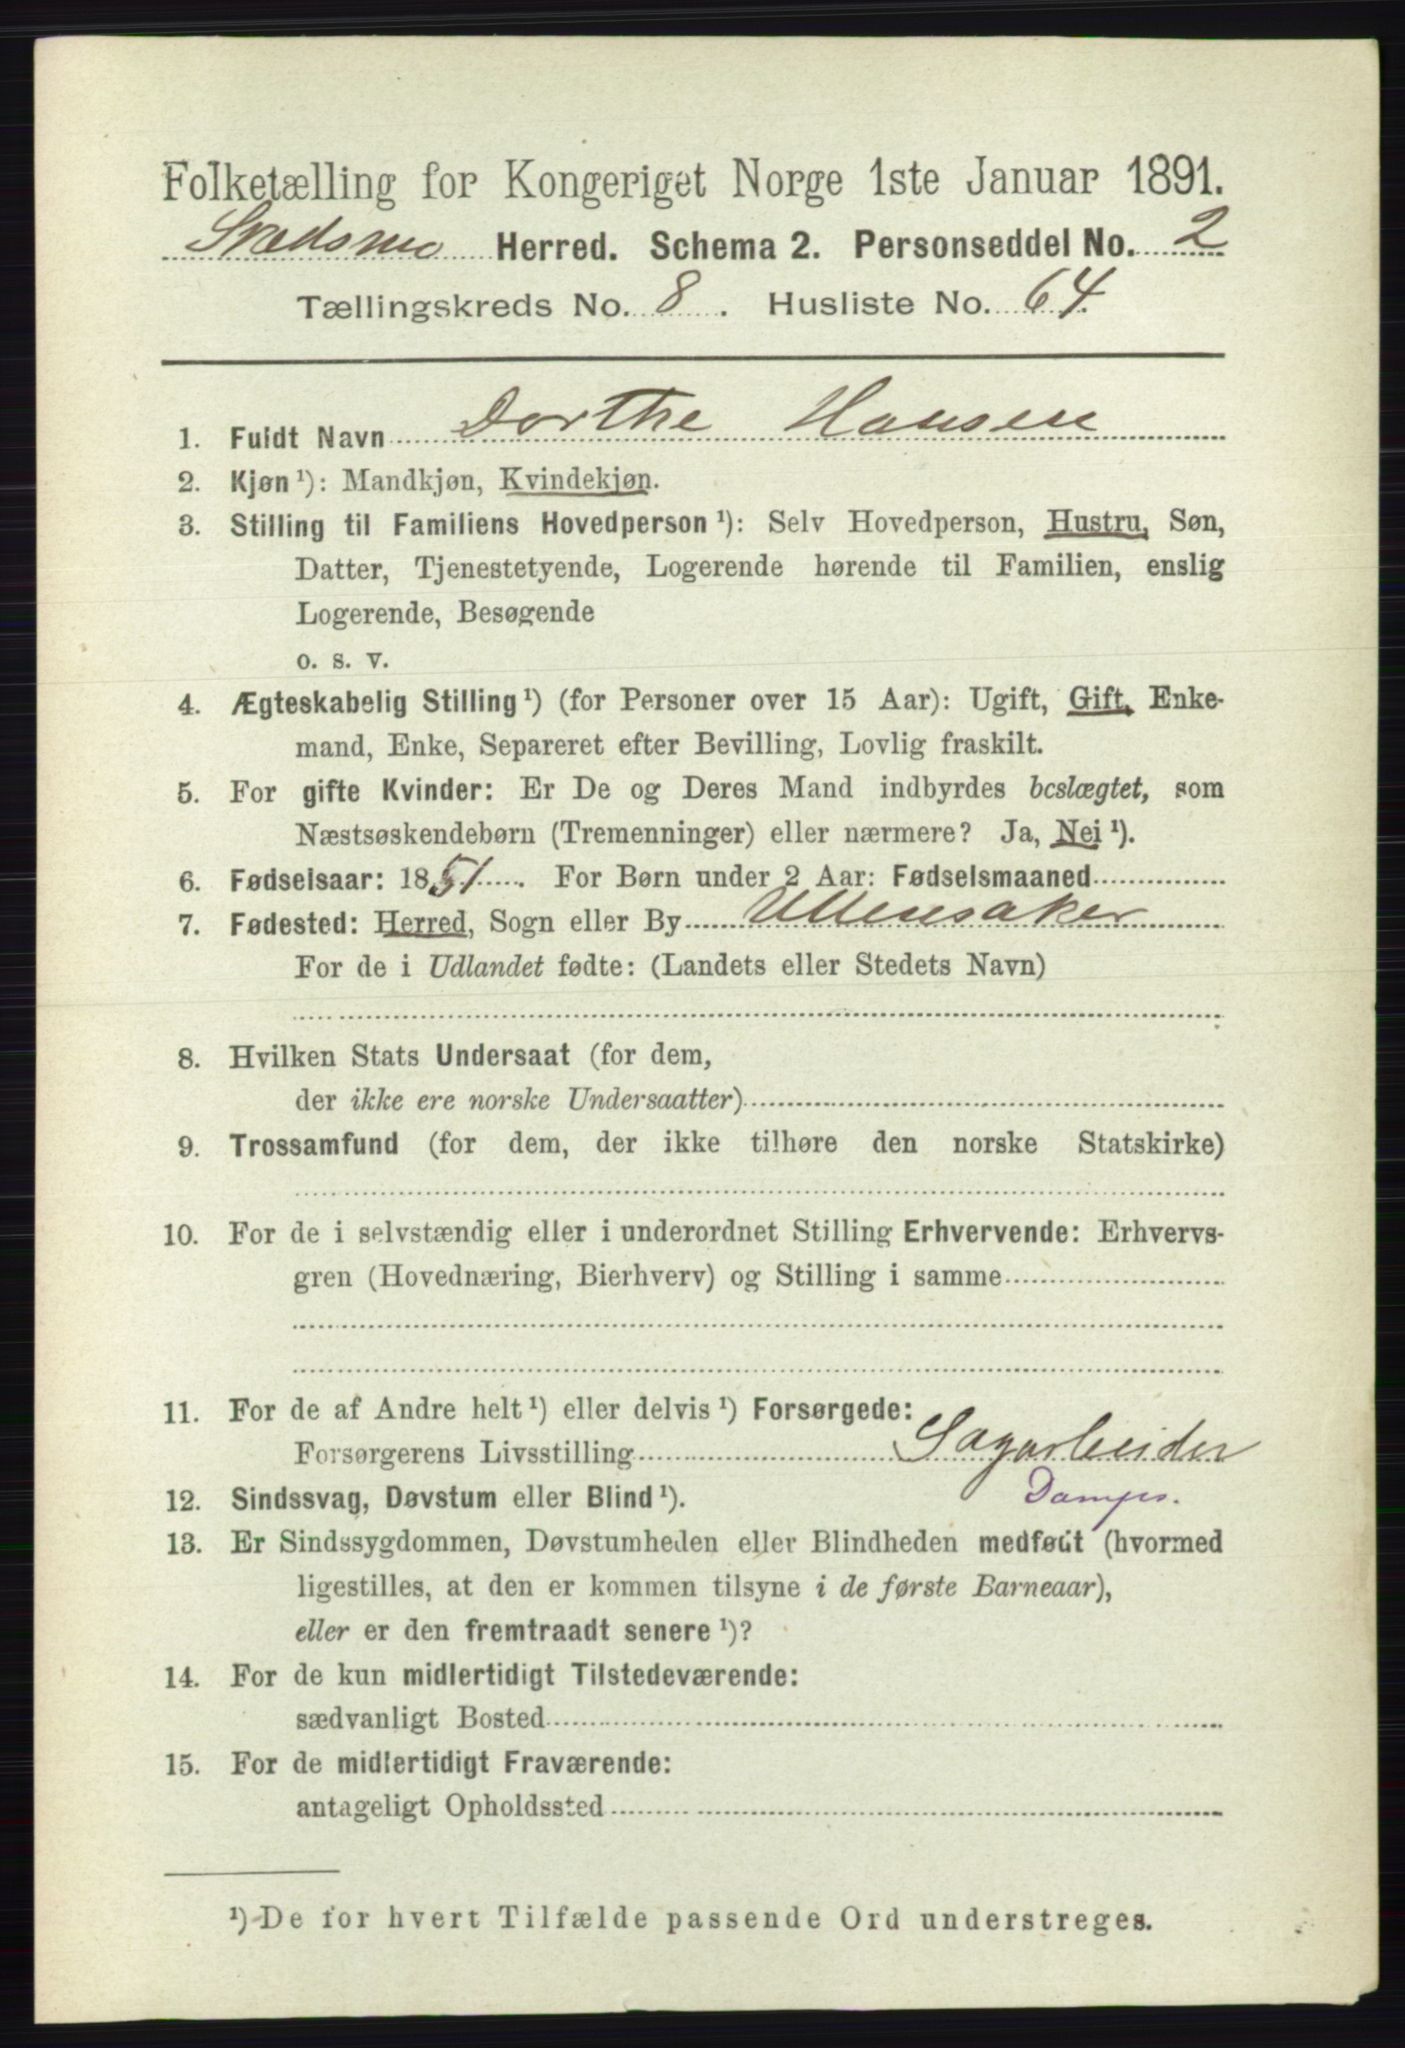 Folketælling for Kongeriget Norge 1ste Januar 1891.
Skedsmo Herred. Schema 2. Personseddel No. 2
Tællingskreds No. 8. Husliste No. 64.
1. Fuldt Navn Dorthe Hansen
2. Kjøn ¹): Mandkjøn, Kvindekjøn.
3. Stilling til Familiens Hovedperson ¹): Selv Hovedperson, Hustru, Søn,
Datter, Tjenestetyende, Logerende hørende til Familien, enslig
Logerende, Besøgende
o. s. v.
4. Ægteskabelig Stilling ¹) (for Personer over 15 Aar): Ugift, Gift, Enke-
mand, Enke, Separeret efter Bevilling, Lovlig fraskilt.
5. For gifte Kvinder: Er De og Deres Mand indbyrdes beslægtet, som
Næstsøskendebørn (Tremenninger) eller nærmere? Ja, Nei ¹).
6. Fødselsaar: 1851. For Børn under 2 Aar: Fødselsmaaned
7. Fødested: Herred, Sogn eller By Ullensaker
For de i Udlandet fødte: (Landets eller Stedets Navn)
8. Hvilken Stats Undersaat (for dem,
der ikke ere norske Undersaatter)
9. Trossamfund (for dem, der ikke tilhøre den norske Statskirke)
10. For de i selvstændig eller i underordnet Stilling Erhvervende: Erhvervs-
gren (Hovednæring, Bierhverv) og Stilling i samme
11. For de af Andre helt ¹) eller delvis ¹) Forsørgede:
Forsørgerens Livsstilling Sagarbeider
12. Sindssvag, Døvstum eller Blind ¹). Damps.
13. Er Sindssygdommen, Døvstumheden eller Blindheden medfødt (hvormed
ligestilles, at den er kommen tilsyne i de første Barneaar),
eller er den fremtraadt senere ¹)?
14. For de kun midlertidigt Tilstedeværende:
sædvanligt Bosted
15. For de midlertidigt Fraværende:
antageligt Opholdssted
¹) De for hvert Tilfælde passende Ord understreges.